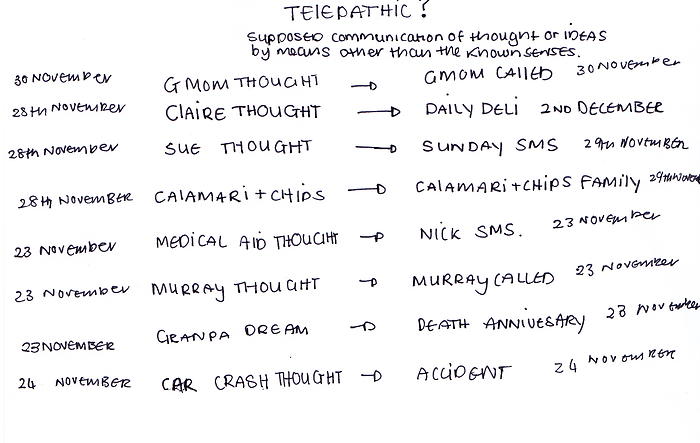 TELEPATHIC?
SUPPOSED COMMUNICATION OF THOUGHT OR IDEAS
by MEANS OTHER THAN THE KNOWN SENSES.
30 NOVEMBER G MOM THOUGHT → GMOM CALLED 30 NOVEMBER
28th NOVEMBER CLAIRE THOUGHT → DAILY DELI 2ND DECEMBER
28th NOVEMBER SUE THOUGHT → SUNDAY SMS 29th NOVEMBER
28th NOVEMBER CALAMARI + CHIPS → CALAMARI + CHIPS FAMILY 29th NOVEM
23 NOVEMBER MEDICAL AID THOUGHT → NICK SMS. 23 NOVEMBER
23 NOVEMBER MURRAY THOUGHT → MURRAY CALLED 23 NOVEMBER
23 NOVEMBER GRANPA DREAM → DEATH ANNIVESARY 23 NOVEMBER
24 NOVEMBER CAR CRASH THOUGHT → ACCIDENT 24 NOVEMBER